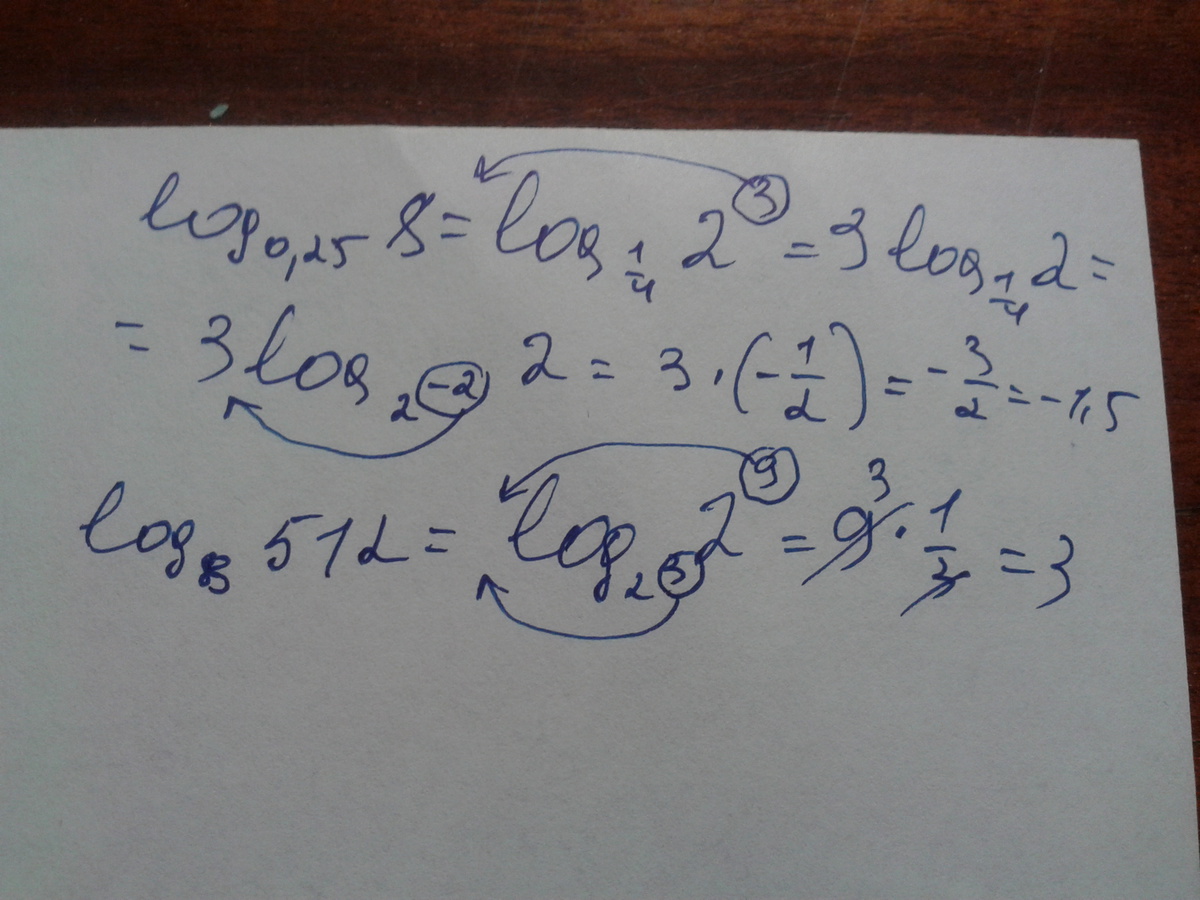 log₀,₂₅ 8 = log_{1/4} 2^3 = 3 log_{1/4} 2 =
= 3 log_{2^{-2}} 2 = 3 · (-1/2) = -3/2 = -1,5
log₈ 512 = log_{2^3} 2^9 = 9 3 · 1/3 = 3